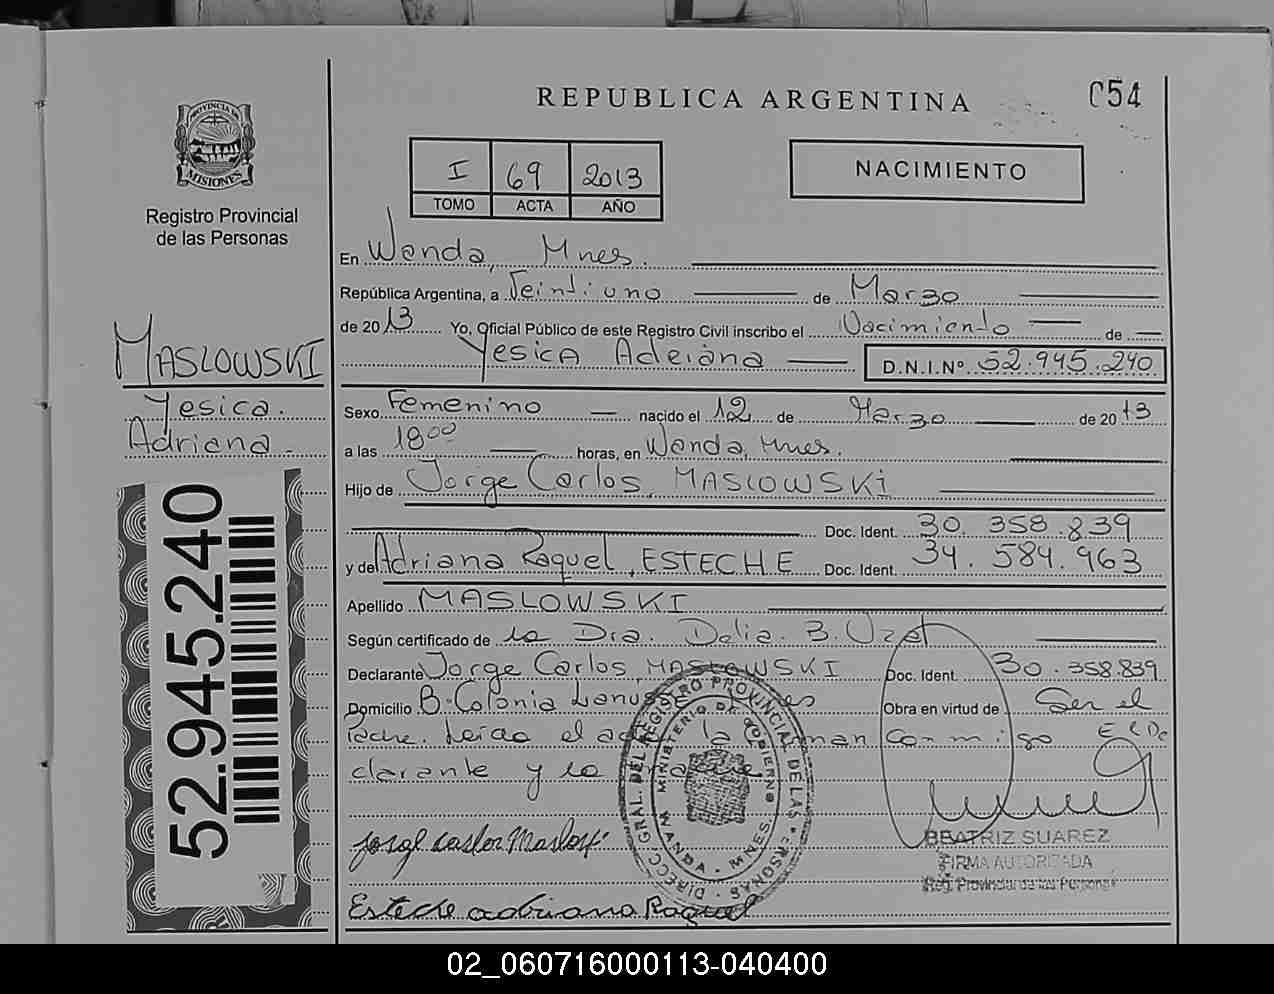 REPUBLICA ARGENTINA
054
PROVINCIA DE
MISIONES
Registro Provincial
de las Personas
I 69 2013
TOMO ACTA AÑO
NACIMIENTO
En Wanda, Mnes.
República Argentina, a Veintiuno de Marzo
de 2013 Yo, Oficial Público de este Registro Civil inscribo el Nacimiento de
Yesica Adriana D.N.I.Nº 52.945.240
MASLOWSKI
Yesica.
Adriana
Sexo Femenino nacido el 12 de Marzo de 2013
a las 18 00 horas, en Wanda, Mnes.
Hijo de Jorge Carlos MASLOWSKI
Doc. Ident. 30.358.839
y de Adriana Raquel, ESTECHE Doc. Ident. 34.584.963
Apellido MASLOWSKI
Según certificado de la Dra. Delia. B. Uzal
Declarante Jorge Carlos, MASLOWSKI Doc. Ident. 30.358.839
Domicilio B. Colonia Lanus Obra en virtud de Ser el
Padre. Leída el la conmigo El De
clarante y la
52.945.240
DIRECC. GRAL. DEL REGISTRO PROVINCIAL DE LAS PERSONAS
MINISTERIO DE GOBIERNO
WANDA - MNES.
BEATRIZ SUAREZ
FIRMA AUTORIZADA
Reg. Provincial de las Personas
Esteche adriana Raquel
02_060716000113-040400